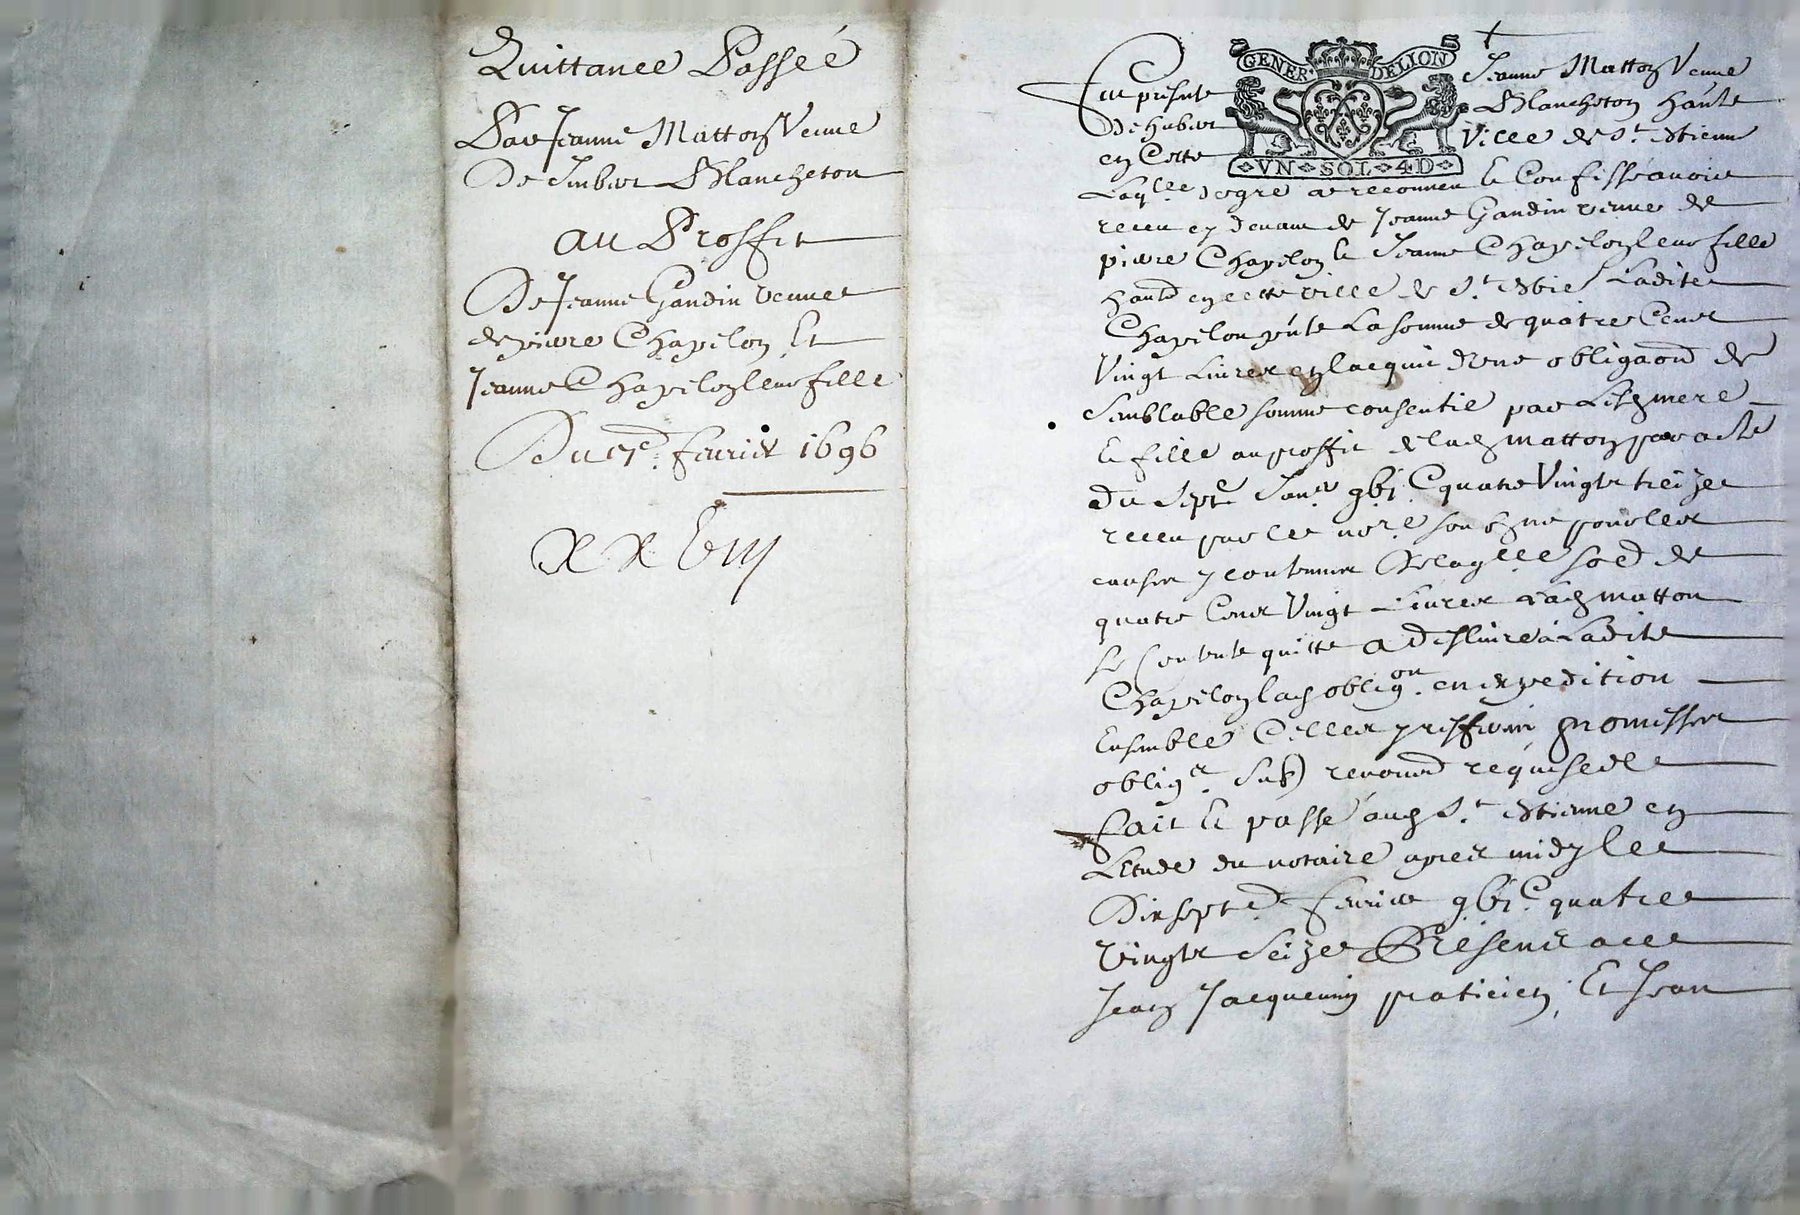 Quittance Passeé
Par Jeanne Matton Vefue
De Imber Blancheton
au Proffit
De Jeanne Gandin vefuee
de pierre Chapelon Et
Jeanne Chapelon leur fille
Du 17e. feurier 1696
GENER DELION
VN SOL 4D
En presente Jeanne Matton Vefue
De Imber Blancheton hante
en Cette Ville de St. Estienne
Laqlle degre a reconneu Et Confissé auoir
receu cy deuant de Jeanne Gandin vefue de
pierre Chapelon Et Jeanne Chapelon leur fille
hantd en cette ville de St. Estie Laditte
Chapelon pnte La somme de quatre Cent
Vingt Liures en lacquit dvne obligaond de
Semblable somme consentie par mere
Et fille au proffit de lad matton par acte
du Sept Janer gbjC quatre Vingtz treize
receu par le nore. sousigne pour les
causes y contenues De laqlle soe de
quatre Cent Vingt Liures lad matton
Se Contente quitte a desliure a Laditte
Chapelon lad obligon. en expedition
Ensemble promesses
obligr. renond requise etc
fait Et passé aud St. Estienne en
LEtude du notaire apres midy le
Dixsept feurier gbjC quatre
vingtz Seize Présents a ce
Jean Jacquemin praticien, Et Jean